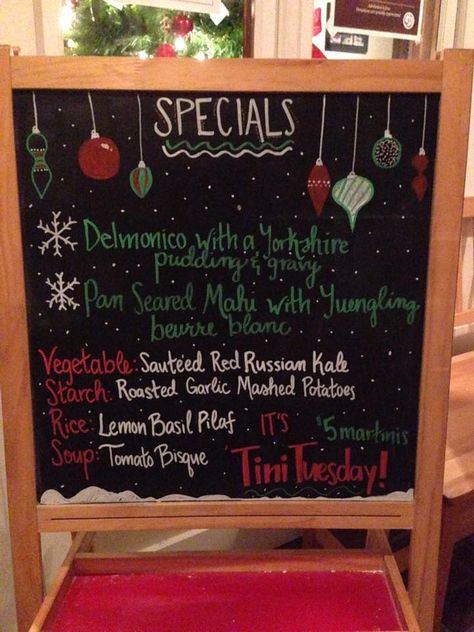 SPECIALS
Delmonico with a Yorkshire
pudding & gravy
Pan Seared Mahi with Yuengling
beurre blanc
Vegetable: Sauteéd Red Russian Kale
Starch: Roasted Garlic Mashed Potatoes
Rice: Lemon Basil Pilaf
Soup: Tomato Bisque
IT'S
$5 martinis
'Tini Tuesday!